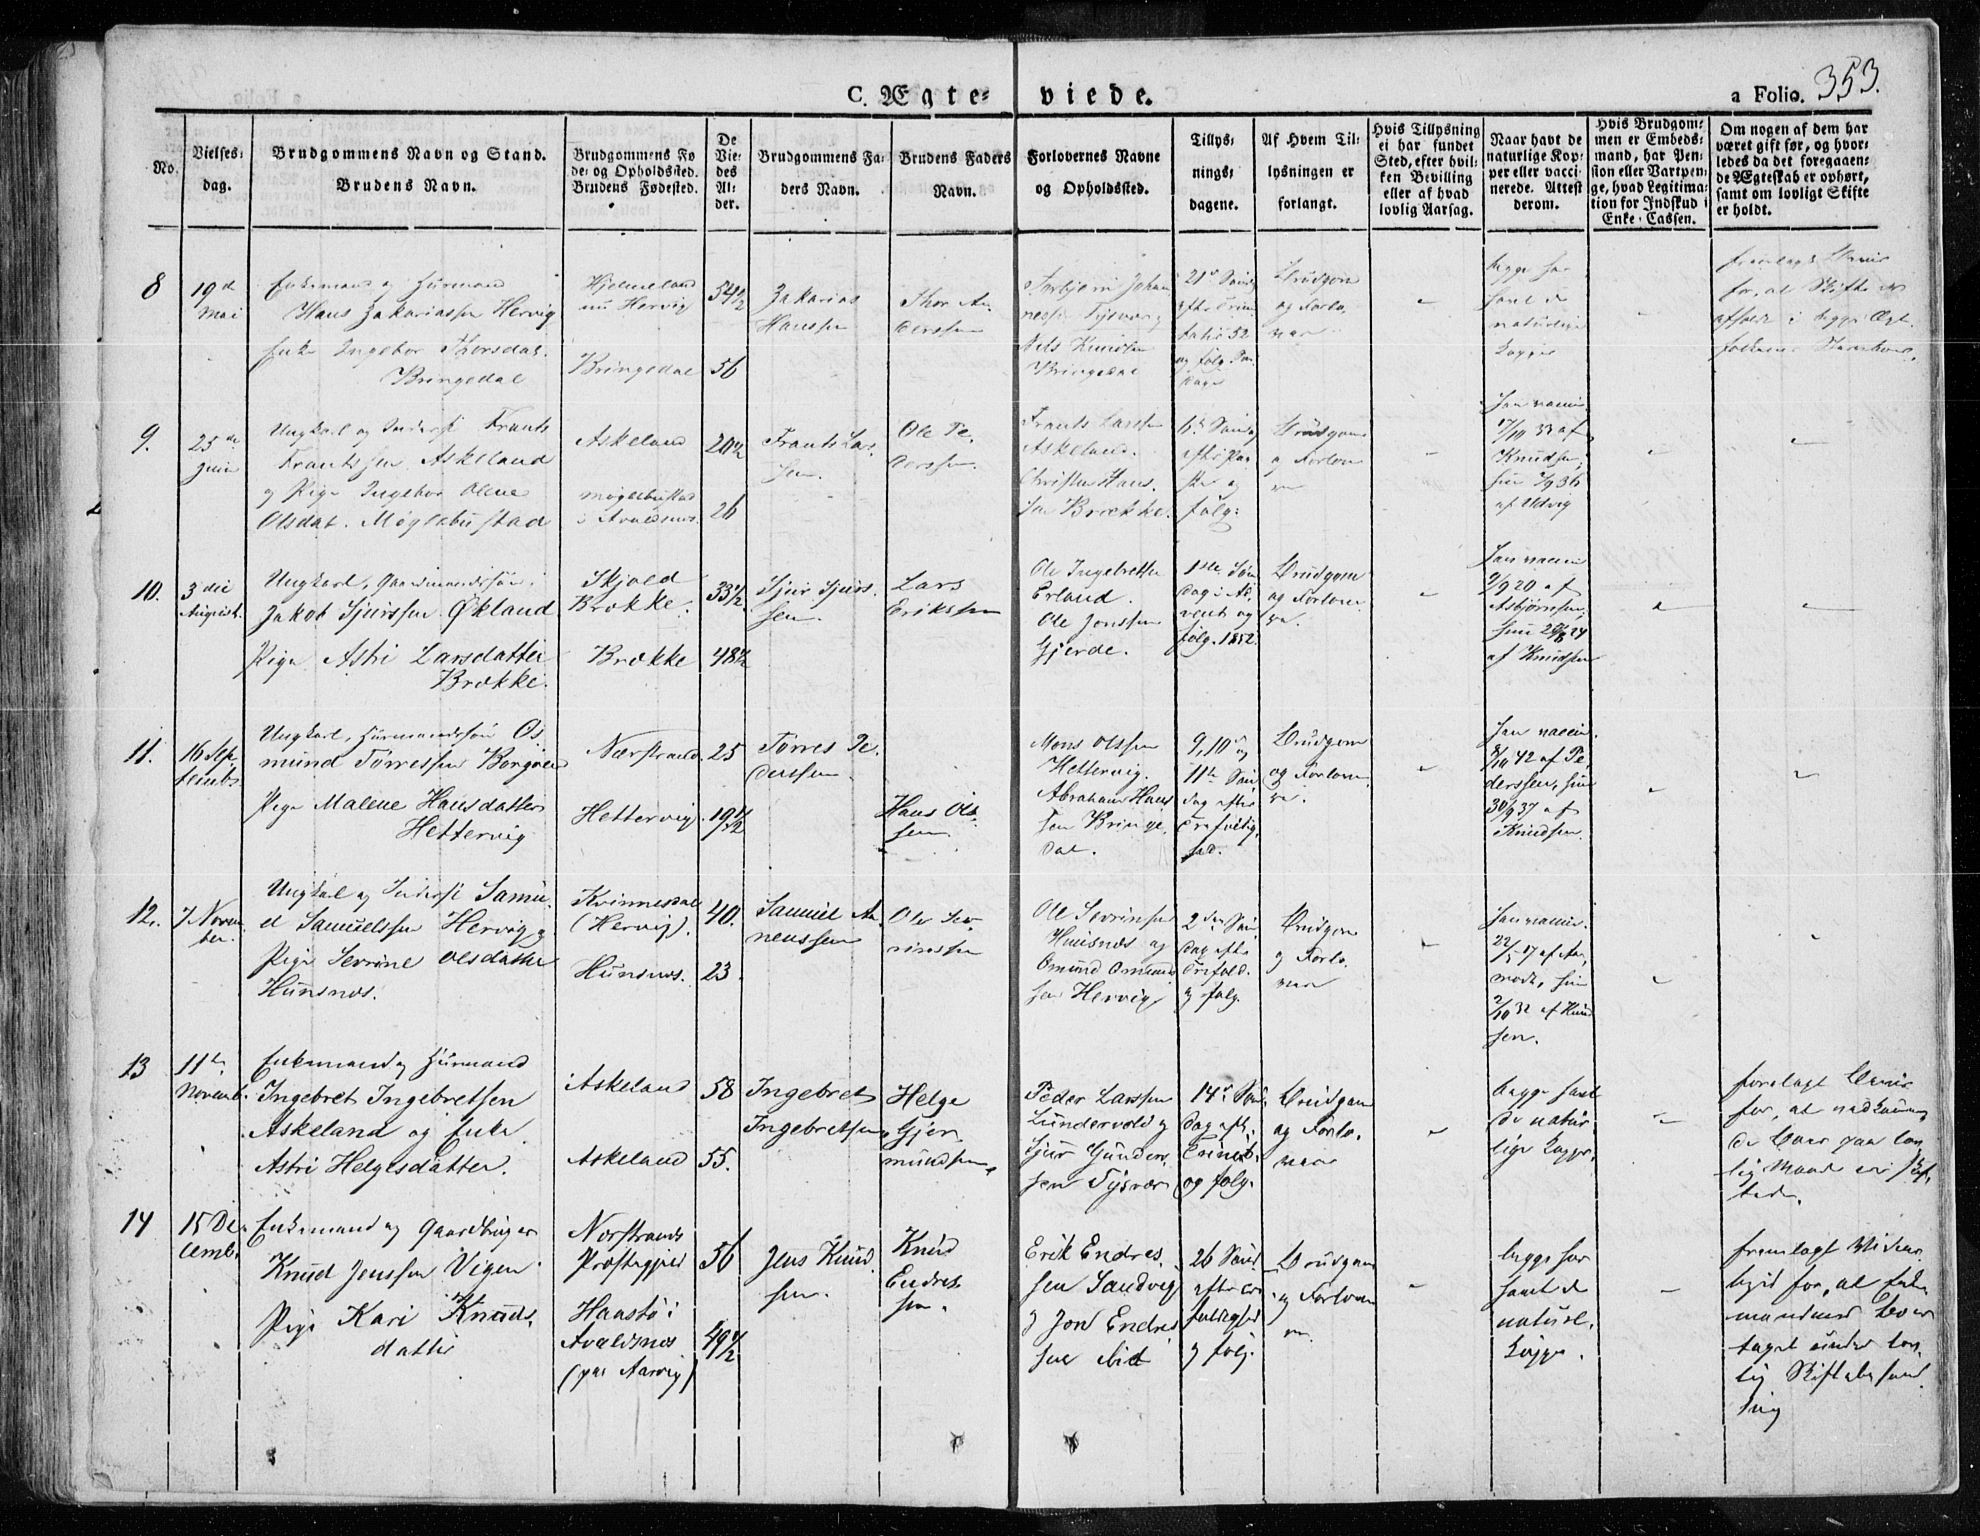 C. Ægte- viede.
a Folio. 353.
No.
Vielses-
dag.
Brudgommens Navn og Stand.
Brudens Navn.
Brudgommens Fø
de- og Opholdssted.
Brudens Fødested.
De
Vie-
des
Al-
der.
Brudgommens Fa-
ders Navn.
Brudens Faders
Navn.
Forlovernes Navne
og Opholdssted.
Tillys-
nings-
dagene.
Af Hvem Til-
lysningen er
forlangt.
Hvis Tillysning
ei har fundet
Sted, efter hvil-
ken Bevilling
eller af hvad
lovlig Aarsag.
Naar havt de
naturlige Kop-
per eller vacci-
nerede. Attest
derom.
Hvis Brudgom-
men er Embeds-
mand, har Pen-
sion eller Vartpen-
ge, hvad Legitima-
tion for Indskud i
Enke-Cassen.
Om nogen af dem har
været gift før, og hvor-
ledes da det foregaaen-
de Ægteskab er ophørt,
samt om lovligt Skifte
er holdt.
8
19de
Mai
Enkemand og Huusmand
Hans Zakariassen Hervig
Enke Ingebor Thorsdat.
Bringedal
Hjelmeland
nu Hervig
Bringedal
54½
56
Zakarias
Hanssen
Thor An-
derssen
Torbjørn Johan
nessen Tysvær
Nels Knudsen
Bringedal
21de Sønd
efter Trini
tatis 52
og følg. Søn
dage
Brudgom
og Forlo-
ver
begge har
havt de
naturlige
Kopper
fremlagt Beviis
for, at Skifte er
afholdt i begge Ægte-
folkenes
9.
25de
Juni
Ungkarl og Inderst Frants
Frantssen Askeland
og Pige Ingebor Olene
Olsdat. Møglebustad
Askeland
Møglebustad
i Avaldsnes.
20½
26
Frants Lar-
sen.
Ole Pe-
derssen.
Frants Larssen
Askeland.
Christen Hans-
sen Brække.
6te Sønd
efter Paa
ske og
følg:
Brudgom
og Forlove
re
han vaccin.
17/10 33 af
Knudsen,
hun 7/9 36
af Udvig
10.
3die
August.
Ungkarl, Gaardmandssøn,
Jakob Sjurssen Økland
Pige Astri Larsdatter
Brække.
Skjold
Brække.
Brække
33½
48½
Sjur Sjurs-
sen.
Lars
Erikssen
Ole Ingebretsen
Erland.
Ole Jonssen
Gjerde.
1ste Søn
dag i Ad-
vent og
følg. 1852.
Brudgom
og Forlove-
re.
han vaccin
2/9 20 af
Asbjørnsen,
hun 20/8 24
af Knudsen
11.
16 Sep-
tember
Ungkarl, Huusmandssøn Os-
mund Tørressen Borgøen
Pige Malene Hansdatter
Hettervig
Nærstrand.
Hettervig.
25
19½
Tørres Pe-
derssen.
Hans Ols-
sen.
Mons Olssen
Hettervig.
Abraham Hans
sen Bringe-
dal.
9, 10de og
11te Søn-
dag efter
Trefoldig-
hed.
Brudgom
og Forlove-
re.
han vaccin.
8/10 42 af Pe-
derssen, hun
30/9 37 af
Knudsen.
12.
7 Novem
ber.
Ungkarl og Inderst Samu-
el Samuelssen Hervig og
Pige Sevrine Olsdatter
Hunsnes.
Kvinnesdal
(Hervig).
Hunsnes.
40.
23.
Samuel An-
neussen
Ole Sev-
rinssen
Ole Sevrinsen
Huusnæs og
Omund Omunds
sen Hervig
2den Søn-
dag efter
Trefold.
og følg.
Brudgom
og Forlo-
ver
han vaccin.
22/5 17 af Aa-
modt, hun
2/10 32 af Knud
sen.
13
11te
Novemb.
Enkemand og Huusmand
Ingebret Ingebretsen
Askeland og Enke
Astri Helgesdatter.
Askeland
Askeland
58
55.
Ingebret
Ingebretsen
Helge
Gjer-
mundsen
Peder Larssen
Lundervold og
Sjur Gunders-
sen Tysvær
14de Søn-
dag eft.
Trinit.
og følg.
Brudgom
og Forlo-
ver
begge havt
de natur-
lige Kopper.
forelagt Beviis
for, at vedkommen-
de Boer paa lov-
lig Maade er skif-
tede.
14
15 De-
cemb.
Enkemand og Gaardbruger
Knud Jenssen Vigen
Pige Kari Knuds-
datter
Norstrands
Præstegjeld
Haustø i
Avaldsnes
(paa Aarvig)
56
49½
Jens Knud-
sen.
Knud
Endres-
sen.
Erik Endres-
sen Sandvig
og Jon Endres-
sen ibid
26 Sønd
efter Tre
foldighed
og følg.
Brudgom
og Forlove
re.
begge har
havt de
naturl.
Kopper.
fremlagt Vidnes-
byrd for, at Enke-
mandens Bo er
taget under lov-
lig Skiftebehand-
ling